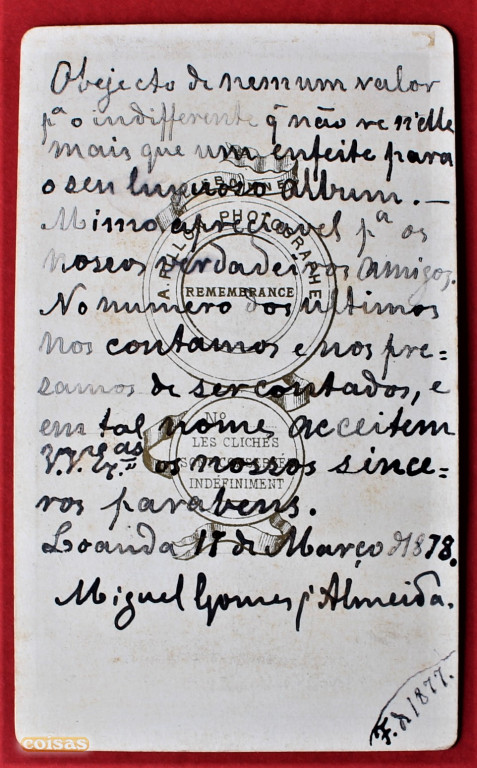 Obejecto de nemum valor
p.ª o indifferente q̃ não ve n'elle
mais que um enfeite para
o seu luxuoso album. —
Mimo apreciavel p.ª os
nossos verdadeiros amigos.
No numero dos ultimos
nos contamos e nos pre=
samos de ser contados, e
em tal nome acceitem
V.V. Ex.ᵃˢ os nossos since=
ros parabens.
Loanda 17 de Março d 1878.
Miguel Gomes d'Almeida.
F. d 1877.
PHOTOGRAPHE
REMEMBRANCE
Nº
LES CLICHÉS
INDÉFINIMENT
coisas